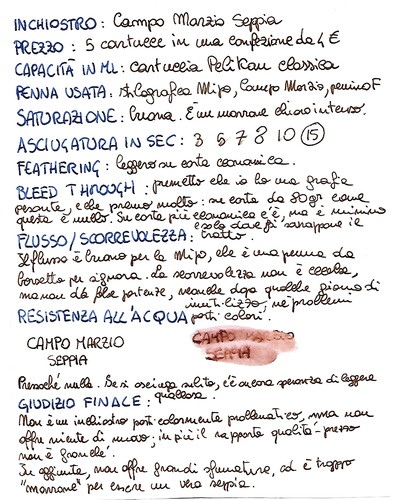 INCHIOSTRO: Campo Marzio Seppia
PREZZO: 5 cartucce in una confezione da 4 €
CAPACITÀ IN ML: cartuccia Pelikan classica
PENNA USATA: stilografica Mijo, Campo Marzio, pennino F
SATURAZIONE: buona. È un marrone chiaro intenso.
ASCIUGATURA IN SEC: 3 5 7 8 10 15
FEATHERING: leggero su carta economica.
BLEED THROUGH: premetto che io ho una grafia
pesante, e che premo molto: su carta da 80gr come
questa è nullo. Su carta più economica c'è, ma è minimo
e solo dove si sovrappone il
FLUSSO/SCORREVOLEZZA: tratto.
Il flusso è buono per la Mijo, che è una penna da
borsetta per signora. La scorrevolezza non è eccelsa,
ma non dà false partenze, neanche dopo qualche giorno di
inutilizzo, né problemi
RESISTENZA ALL'ACQUA particolari.
CAMPO MARZIO
SEPPIA
CAMPO MARZIO
SEPPIA
Pressoché nulla. Se si asciuga subito, c'è ancora speranza di leggere
GIUDIZIO FINALE: qualcosa.
Non è un inchiostro particolarmente problematico, ma non
offre niente di nuovo; in più il rapporto qualità-prezzo
non è granché.
In aggiunta, non offre grandi sfumature, ed è troppo
"marrone" per essere un vero seppia.